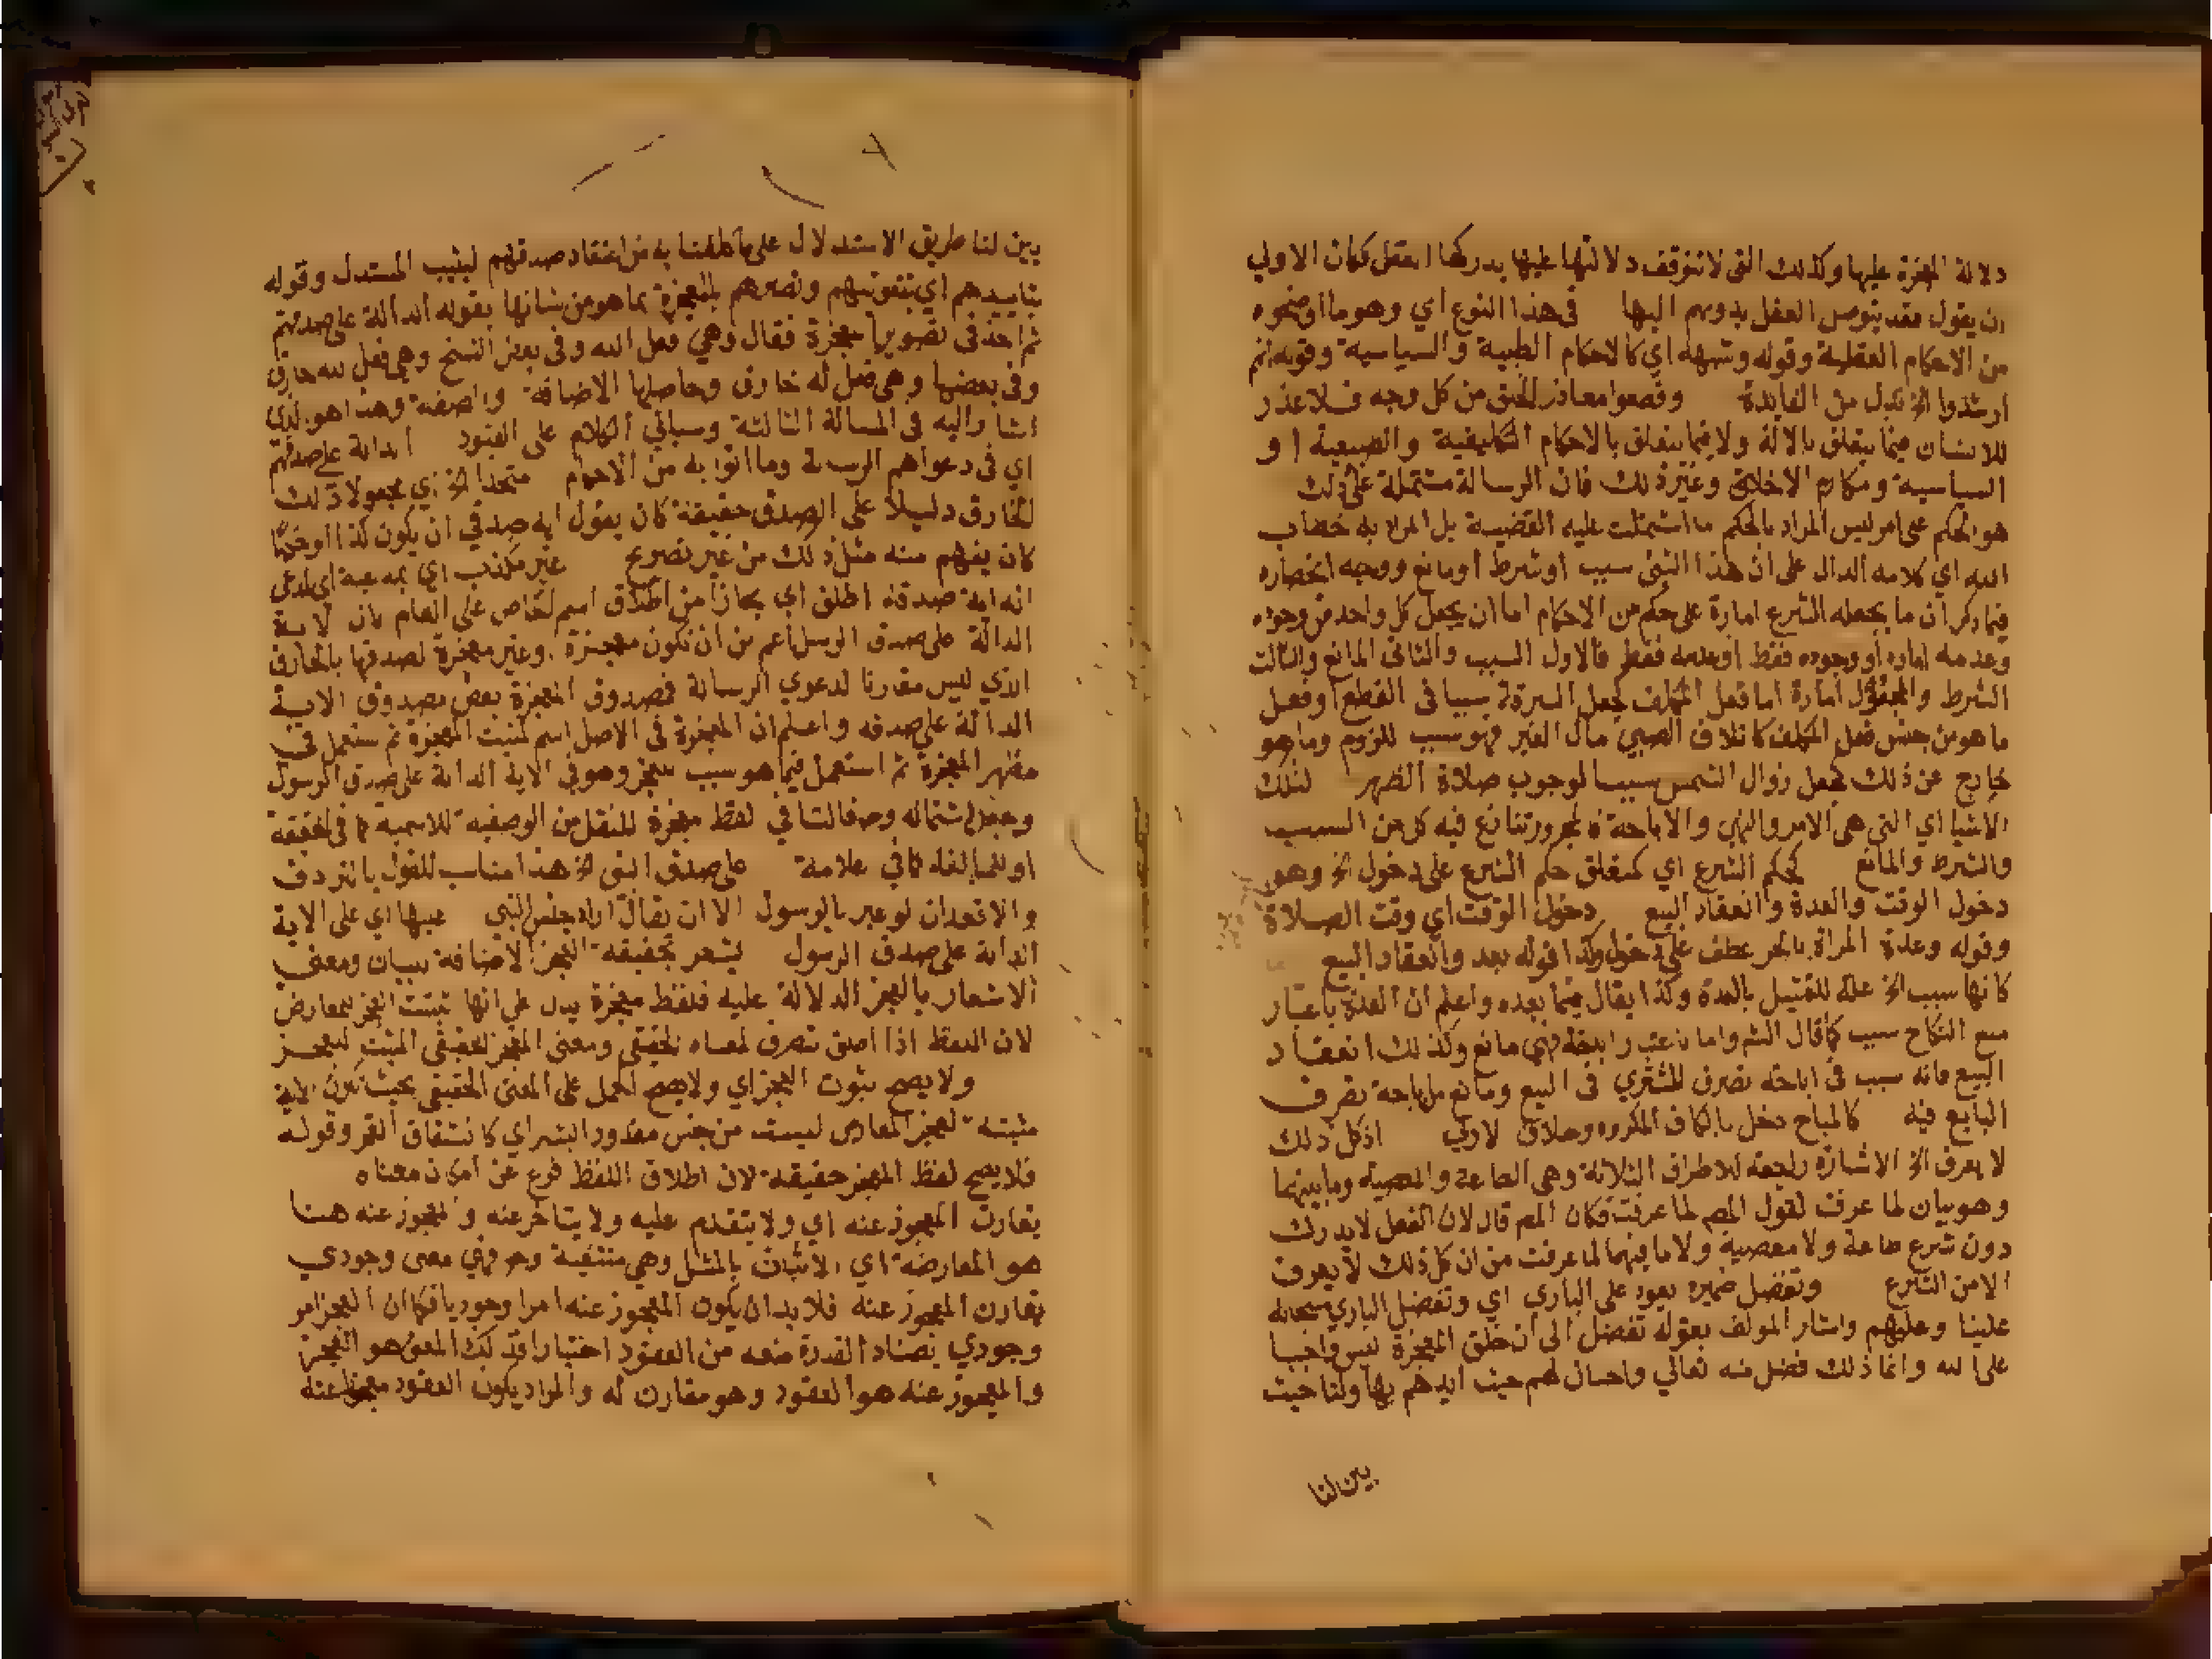 دلالة المعجزة عليها وكذلك التى لا تتوقف دلالتها عليها يدركها العقل فكان الاولى
ان يقول فقد يتوصل العقل بدونهم اليها في هذا النوع اي وهو ما اوضحوه
من الاحكام العقلية وقوله وشبهه اي كالاحكام الطبية والسياسية وقوله اثم
ارشدوا الخ بدل من الفايدة وقطعوا معاذر الخلق من كل وجه فلا عذر
للانسان فيما يتعلق بالالة ولا فيما يتعلق بالاحكام التكليفية والطبيعية او
السياسية ومكارم الاخلاق وغير ذلك فان الرسالة مشتملة على ذلك
هو الحكم على امر ليس المراد بالحكم ما اشتملت عليه القضية بل المراد به خطاب
الله اي كلامه الدال على ان هذا الشئ سبب او شرط او مانع ووجه انحصاره
فيما ذكر ان ما يجعله الشرع امارة على حكم من الاحكام اما ان يجعل كل واحد من وجوده
وعدمه امارة او وجوده فقط او عدمه فقط فالاول السبب والثانى المانع والثالث
الشرط والمجعول امارة اما فعل المكلف كجعل السرقة سببا فى القطع او فعل
ما هو من جنس فعل المكلف كاتلاف الصبي مال الغير فهو سبب للزوم وما هو
خارج عن ذلك كجعل زوال الشمس سببا لوجوب صلاة الظهر لتلك
الاشيا اي التى هى الامر والنهي والاباحة تنازع فيه كل من السبب
والشرط والمانع كحكم الشرع اي كتعلق حكم الشرع على دخول الخ وهو
دخول الوقت والعدة وانعقاد البيع دخول الوقت اي وقت الصلاة
وقوله وعدة المراة بالجر عطف على دخول وكذا قوله بعد وانعقاد البيع
كانها سبب الخ علة للتمثيل بالعدة وكذا يقال فيما بعده واعلم ان العدة باعتبار
منع النكاح سبب كما قال الشم واما باعتبار اباحته فهي مانع وكذلك انعقاد
البيع فانه سبب فى اباحة تصرف المشتري فى البيع ومانع من اباحة تصرف
البايع فيه كالمباح دخل بالكاف المكروه وخلاف الاولى اذ كل ذلك
لا يعرف الخ الاشارة راجعة للاطراف الثلاثة وهى الطاعة والمعصية وما بينهما
وهو بيان لما عرفت لقول المص لما عرفت فكان المص قال لان العقل لا يدرك
دون شرع طاعة ولا معصية ولا ما بينهما لما عرفت من ان كل ذلك لا يعرف
الا من الشرع وتفضل ضميره يعود على الباري اي وتفضل الباري سبحانه
علينا وعليهم واشار المولف بقوله تفضل الى ان خلق المعجزة ليس واجبا
على الله وانما ذلك فضل منه تعالى واحسان لهم حيث ايدهم بها ولنا حيث
بين لنا
بين لنا طريق الاستدلال على ما كلفنا به من اعتقاد صدقهم ليثيب المستدل وقوله
بتاييدهم اي بتقويتهم ونصرهم بالمعجزة بما هو من شانها بقوله الدالة على صدقهم
ثم اخذ فى تصويرها معجزة فقال وهي فعل الله وفى بعض النسخ وهي فعل لله خارق
وفى بعضها وهى فعل له خارق وحاصلها الاضافة والصفة وهذا هو الذي
اشار اليه فى المسالة الثالثة وسياتي الكلام على القيود الدالة على صدقهم
اي فى دعواهم الرسالة وما اتوا به من الاحكام متحدا الخ اي مجعولا ذلك
الخارق دليلا على الصدق حقيقة كان يقول اية صدقي ان يكون كذا او حكما
كان يفهم منه مثل ذلك من غير تصريح غير مكذب اي
انه اية صدقه اطلق اي مجازا من اطلاق اسم الخاص على العام لان الاية
الدالة على صدق الرسل اعم من ان تكون معجزة وغير معجزة لصدقها بالخارق
الذي ليس مقارنا لدعوي الرسالة فصدوق المعجزة بعض مصدوق الاية
الدالة على صدقه واعلم ان المعجزة فى الاصل اسم لمثبت المعجزة ثم استعمل فى
مظهر المعجزة ثم استعمل فيما هو سبب العجز وهو في الاية الدالة على صدق الرسول
وصفا لتا في لفظ معجزة للنقل من الوصفية للاسمية كما فى الحقيقة
او للمبالغة كما في علامة على صدق النبى الخ هذا مناسب للقول بالترادف
والا فعدان لو عبر بالرسول الا ان يقال اراد جنس النبي عليها اي على الاية
الدالة على صدق الرسول يشعر بحقيقة العجز الاضافة بيان ومعنى
الاشعار بالعجز الدلالة عليه فلفظ معجزة يدل على انها تثبت العجز للمعارض
لان اللفظ اذا اطلق تصرف لمعناه الحقيقى ومعنى المعجز الحقيقى المثبت للعجز
ولا يصح ثبوت العجز اي ولا يصح الحمل على المعنى الحقيقى بحيث تكون الاية
مثبتة لعجز المعارض ليست من جنس مقدور البشر اي كانشقاق القمر وقوله
فلا يصح لفظ المعجز حقيقة لان اطلاق اللفظ فرع عن امكان معناه
يقارن المعجوز عنه اي ولا يتقدم عليه ولا يتاخر عنه والمعجوز عنه هنا
هو المعارضة اي الاتيان بالمثل وهي منتفية وهى معنى وجودي
يقارن المعجوز عنه فلا بد ان يكون المعجوز عنه امرا وجوديا فكما ان العجز امر
وجودي يضاد القدرة منعه من القعود اختيارا فذلك المعنى هو العجز
والمعجوز عنه هو القعود وهو مقارن له والمراد يكون القعود معجوزا عنه